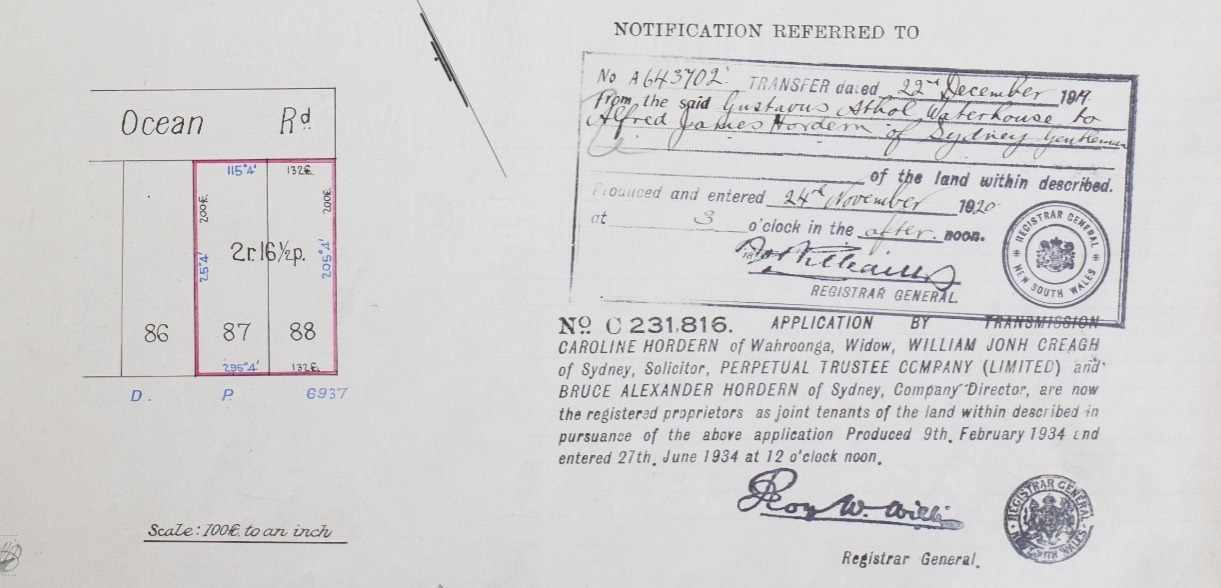 Ocean Rd
115°4'
132f.
200f.
200f.
25°4'
2r.16½p.
205°4'
86
87
88
295°4'
132f.
D. P. 6937
Scale: 100f. to an inch
NOTIFICATION REFERRED TO
No A643702 TRANSFER dated 22nd December 1919.
From the said Gustavus Athol Waterhouse to
Alfred James Hordern of Sydney Gentleman
of the land within described.
Produced and entered 24th November 1920
at 3 o'clock in the after noon.
REGISTRAR GENERAL
REGISTRAR GENERAL
NEW SOUTH WALES
No C 231.816. APPLICATION BY TRANSMISSION
CAROLINE HORDERN of Wahroonga, Widow, WILLIAM JONH CREAGH
of Sydney, Solicitor, PERPETUAL TRUSTEE COMPANY (LIMITED) and
BRUCE ALEXANDER HORDERN of Sydney, Company Director, are now
the registered proprietors as joint tenants of the land within described in
pursuance of the above application Produced 9th. February 1934 and
entered 27th. June 1934 at 12 o'clock noon.
Registrar General.
REGISTRAR GENERAL